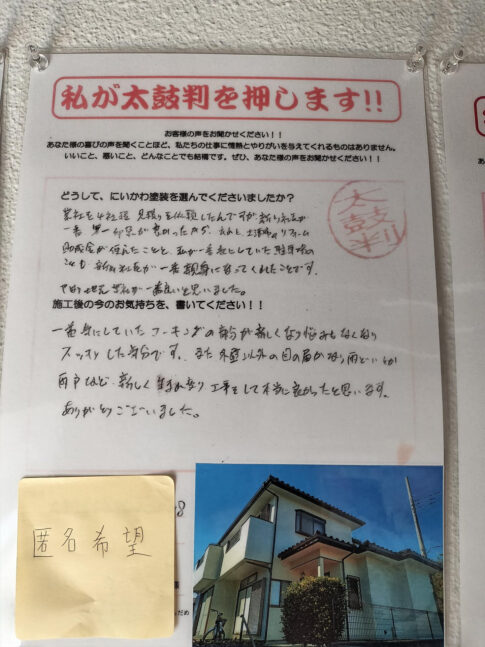 私が太鼓判を押します!!
お客様の声をお聞かせください！！
あなた様の喜びの声を聞くことほど、私たちの仕事に情熱とやりがいを与えてくれるものはありません。
いいこと、悪いこと、どんなことでも結構です。ぜひ、あなた様の声をお聞かせください！！
どうして、にいかわ塗装を選んでくださいましたか？
太鼓判
業社を4社程 見積りを依頼したんですが 新川社長が
一番 第一印象が良かった
リフォーム
助成金が使えたことと、私が一番気にしていた
ことも 新川社長が一番親身になってくれたことです。
一番良いと思いました。
施工後の今のお気持ちを、書いてください！！
一番気にしていたコーキングの部分が新しくなり悩みもなくなり
スッキリした気分です。また 外壁以外の目の届かない雨どいとか
雨戸など 新しく生まれ変り 工事をして本当に良かったと思います。
ありがとうございました。
8
匿名希望